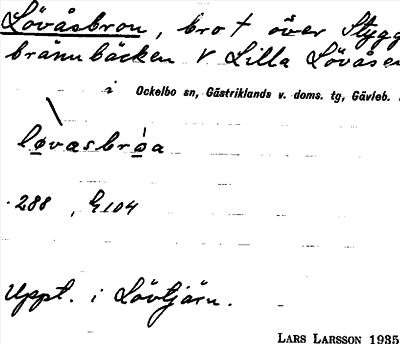 Lövåsbron, bro t över Stygg
brännbäcken V Lilla Lövåsen
i Ockelbo sn, Gästriklands v. doms. tg, Gävleb.
løvasbrøa
288, G104
Uppt. i Lövtjärn.
LARS LARSSON 1935